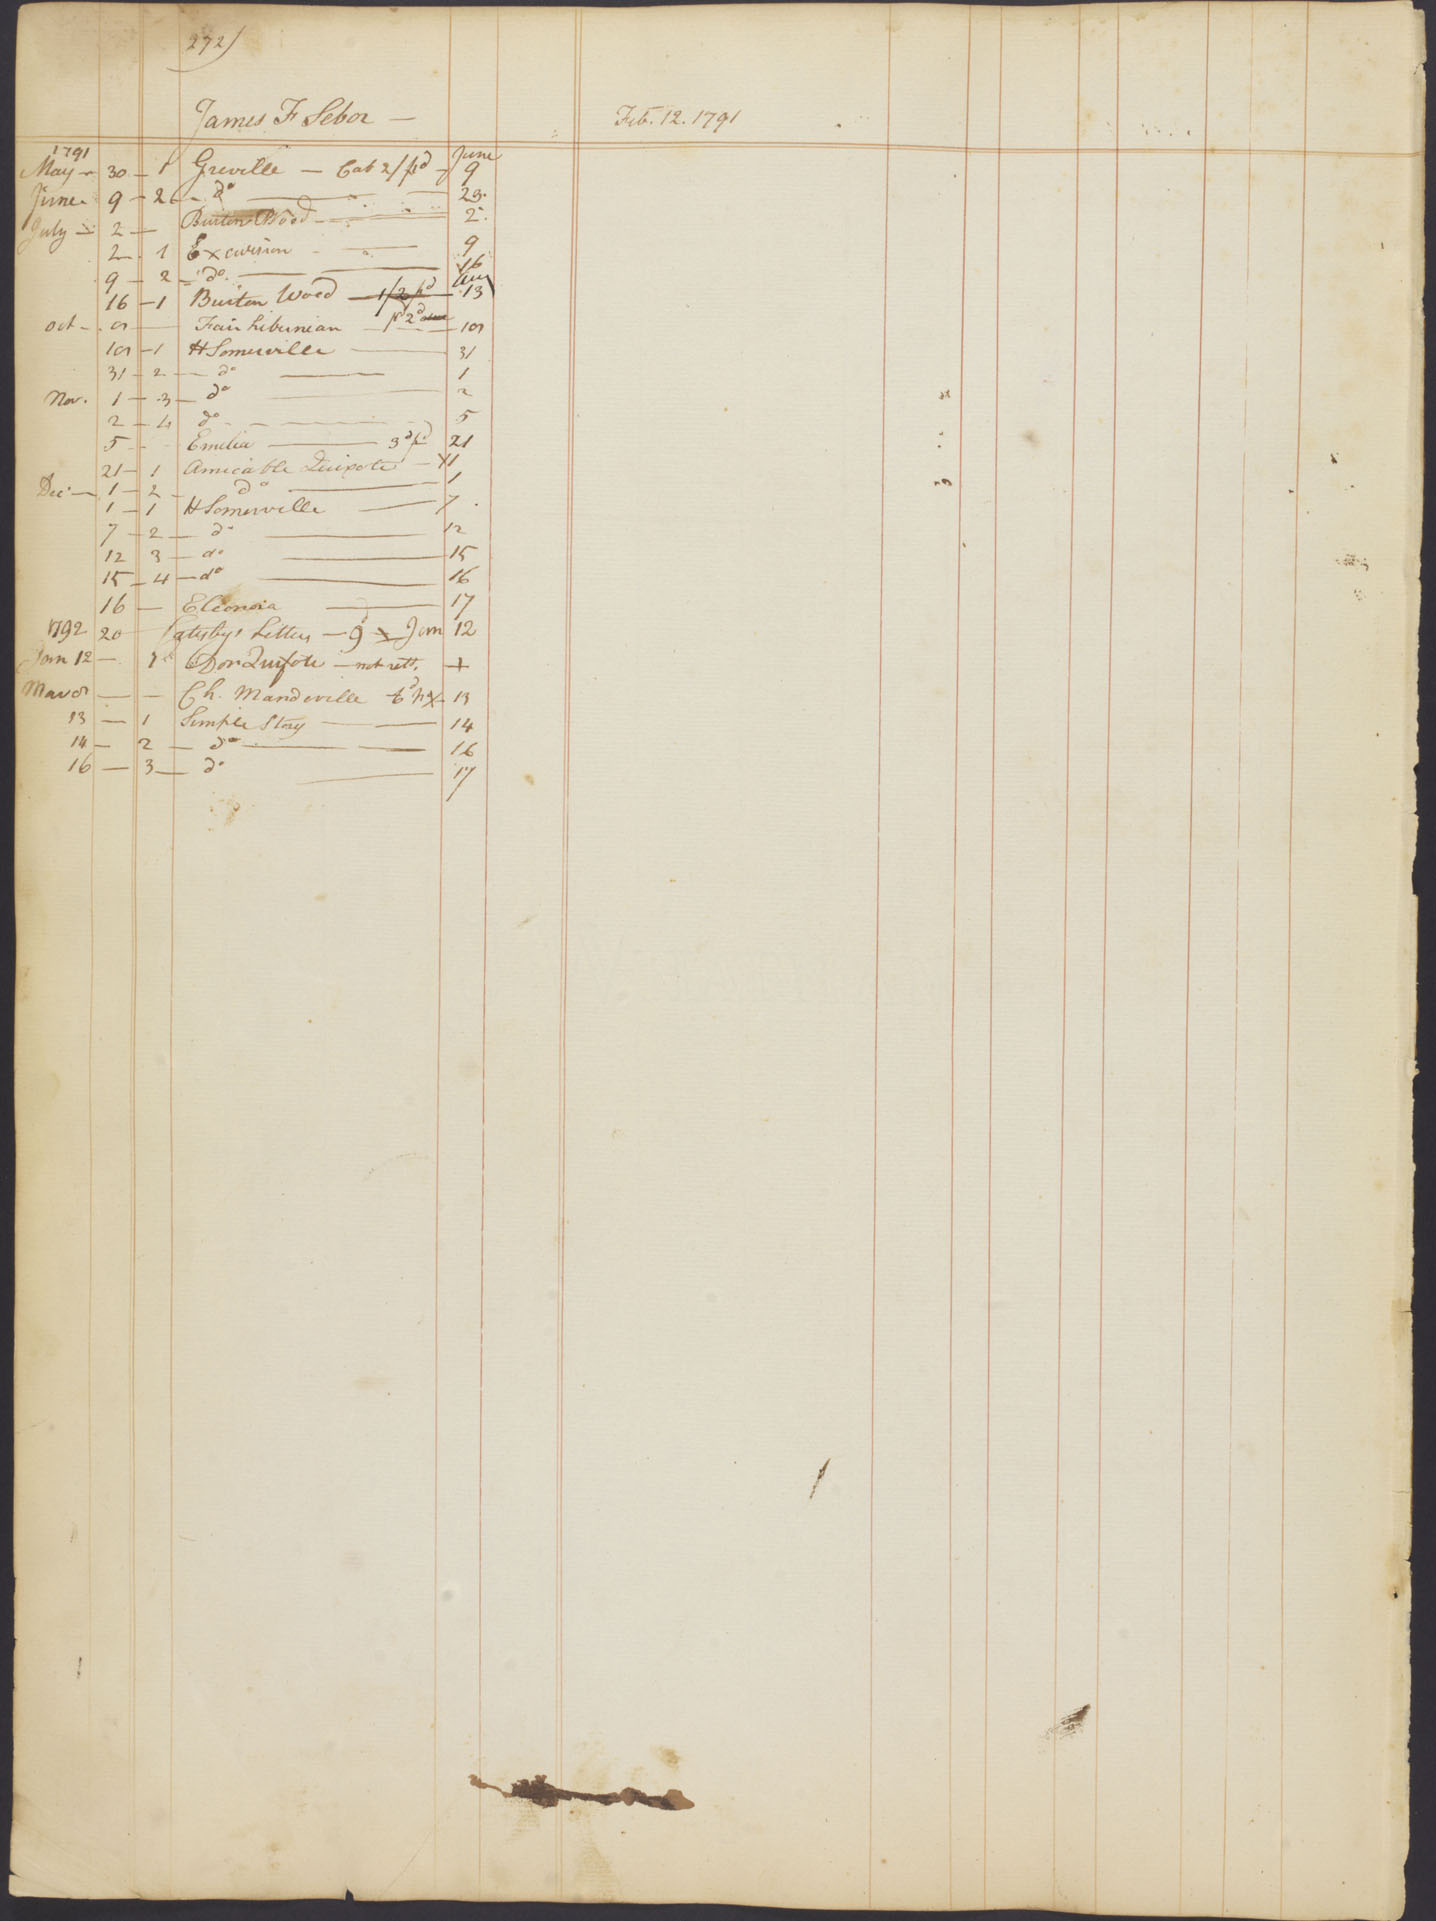 272)
James F Sebor — Feb. 12. 1791
1791 June
May — 30 — 1 Greville — Cat 2/ pd — 9
June — 9 — 2 — do — 23.
July — 2 — Burton Wood — 2
2 . 1 Excursion — 9
9 — 2 — do. — 16
16 — 1 Burton Wood — 1/2 pd — Aug 13
Oct — 8 — Fair Hibernian — pd 2d — 18
18 — 1 H Somerville — 31
31 — 2 — do — 1
Nov. 1 — 3 — do — 2
2 — 4 do — 5
5 — Emelia — 3d pd 21
21 — 1 Amicable Quixote — X1
Dec — 1 — 2 — do — 1
1 — 1 H Somerville — 7
7 — 2 — do — 12
12 3 — do — 15
15 — 4 — do — 16
16 — Eleonora — 17
1792 20 Catesbys Letters — 9d X Jan 12
Jan 12 — 1 Don Quixote — not rett. +
Mar 8 — — Ch. Mandeville 6d pd X 13
13 — 1 Simple Story — 14
14 — 2 — do — 16
16 — 3 — do — 17